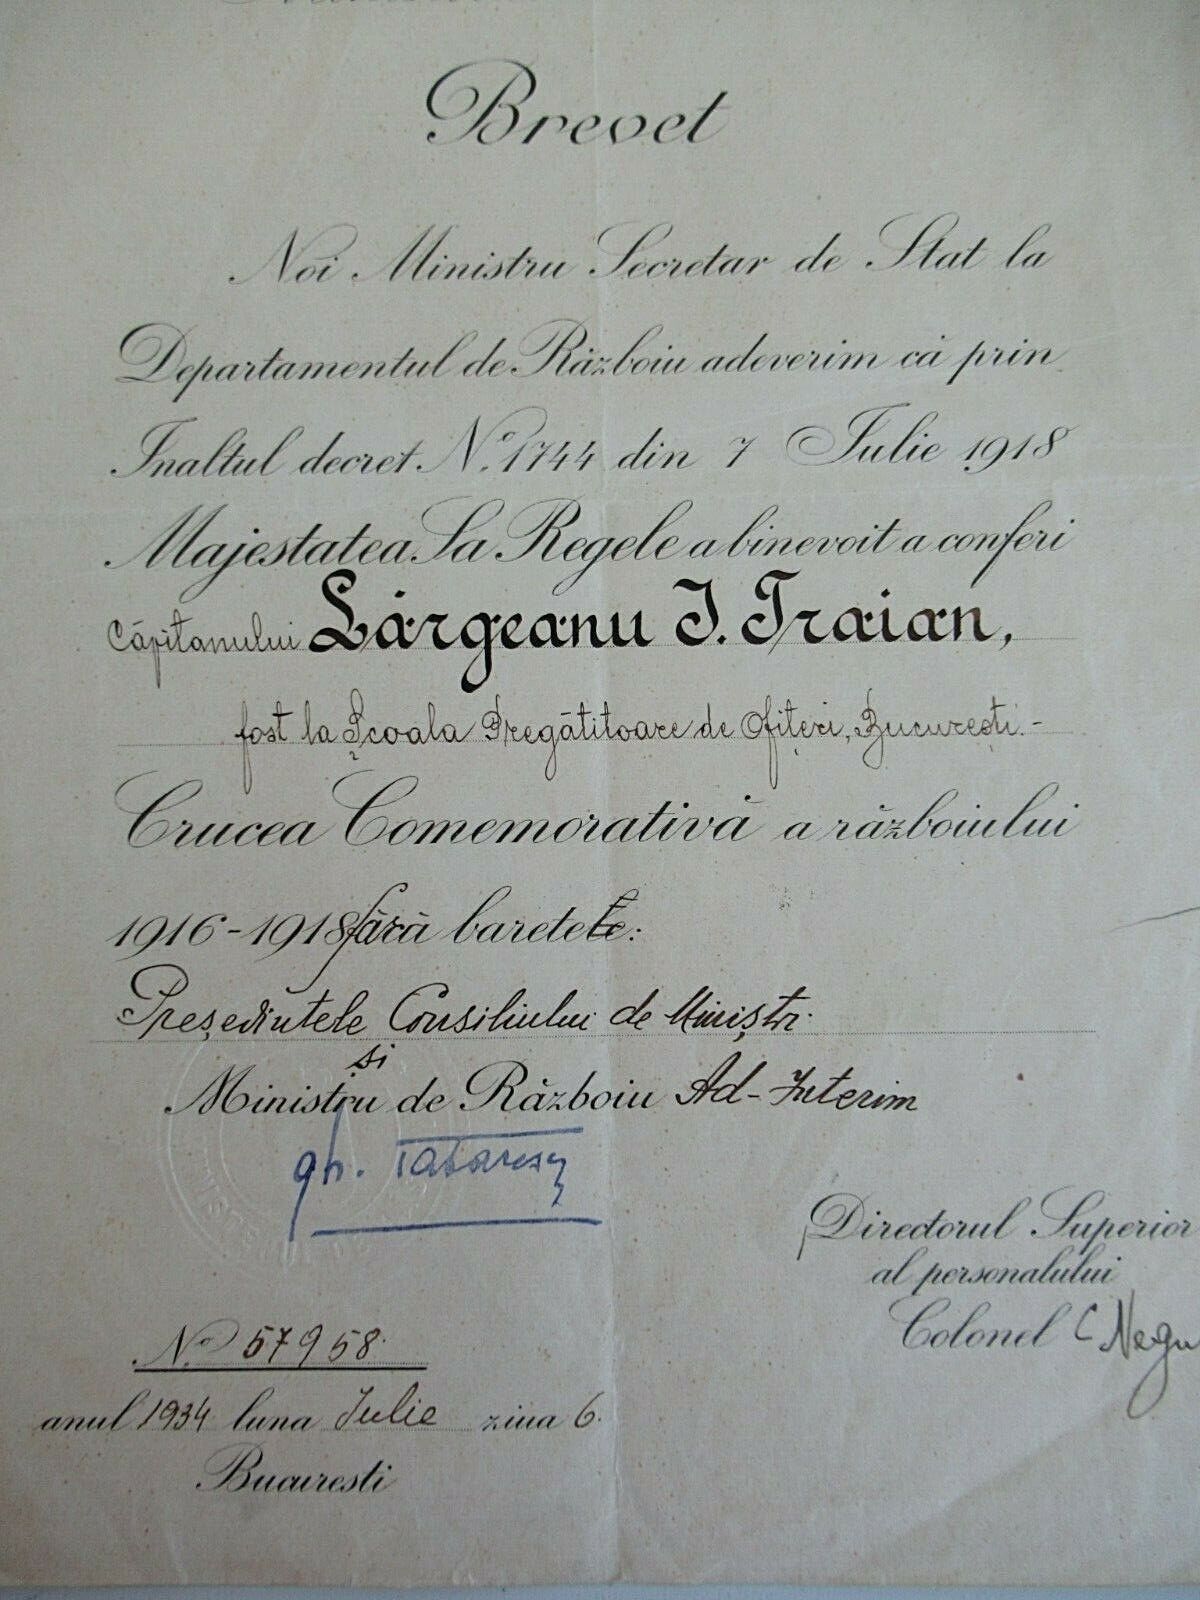 Brevet
Noi Ministru Secretar de Stat la
Departamentul de Războiu adeverim că prin
Inaltul decret No. 1744 din 7 Iulie 1918
Majestatea Sa Regele a binevoit a conferi
Căpitanului Lărgeanu I. Traian,
fost la Școala Pregătitoare de Ofițeri, București.-
Crucea Comemorativă a războiului
1916-1918 fără baretele:
Președintele Consiliului de Miniștri
și
Ministru de Războiu Ad-Interim
gh. Tatarescu
Directorul Superior
al personalului
Colonel C Negu
No 57958.
anul 1934 luna Iulie ziua 6.
Bucuresti